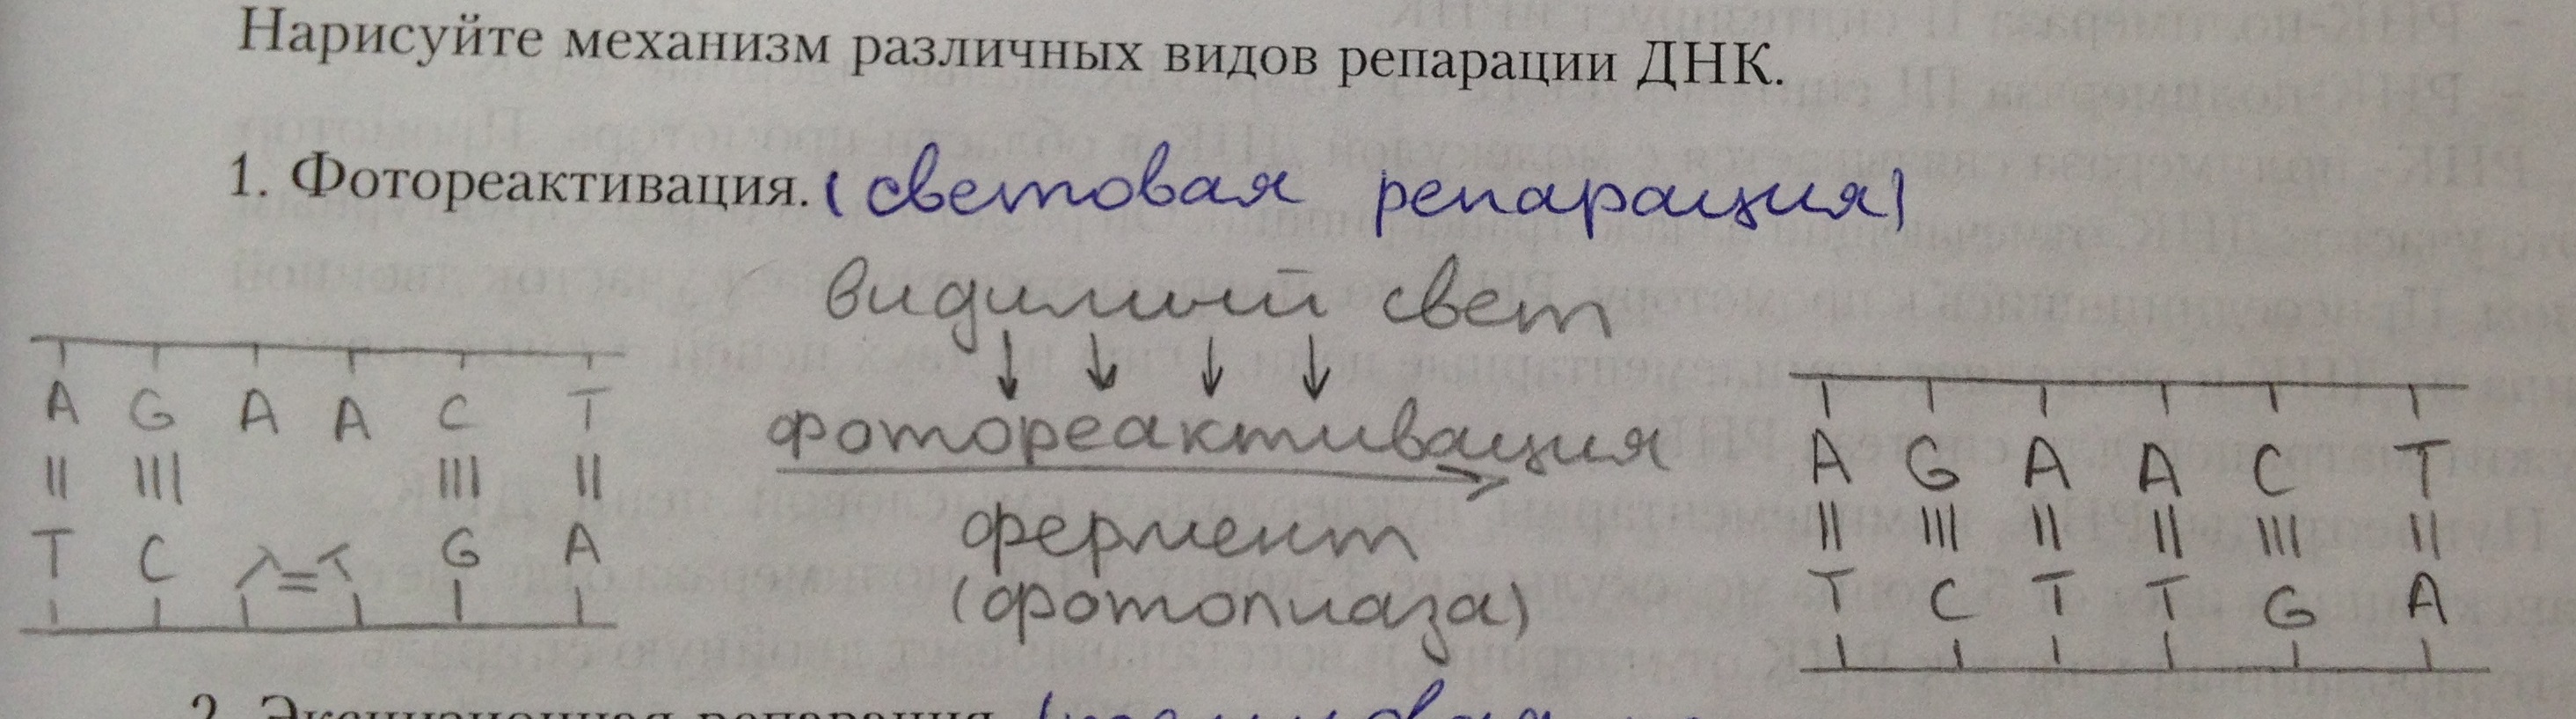 Нарисуйте механизм различных видов репарации ДНК.
1. Фотореактивация. (световая репарация)
видимый свет
↓ ↓ ↓ ↓
A G A A C T
фотореактивация
A G A A C T
T C T=T G A
фермент
T C T T G A
(фотолиаза)
2. Эксцизионная репарация.